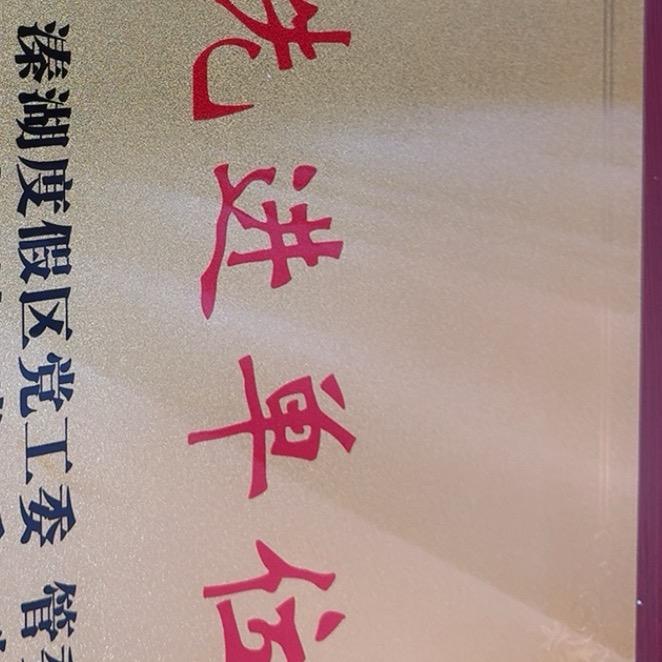 先进单位
溱湖度假区党工委 管